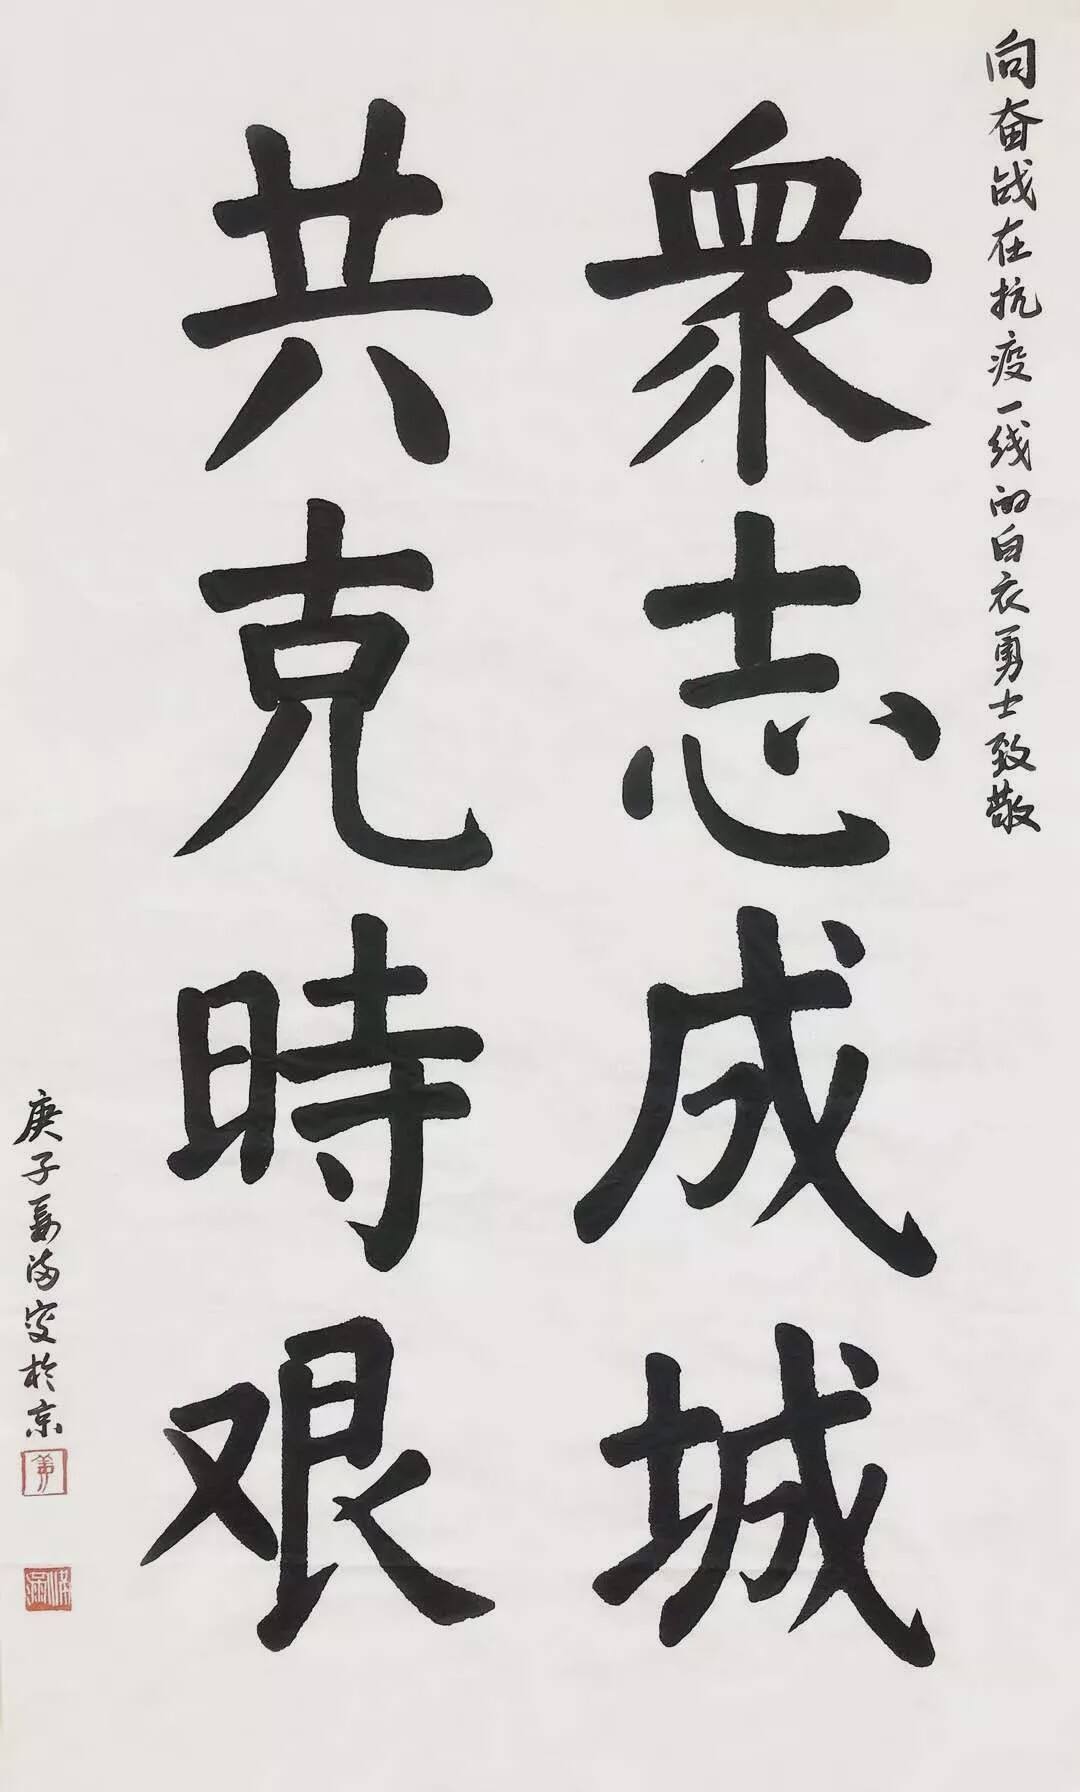 向奋战在抗疫一线的白衣勇士致敬
衆志成城
共克時艱
庚子姜满安於京